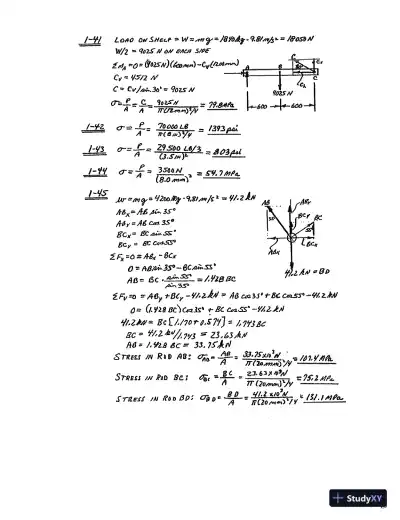 1-41 LOAD ON SHELF = W = mg = 1840 kg · 9.81 m/s² = 18050 N
W/2 = 9025 N ON EACH SIDE
ΣM_A = 0 = (9025 N)(600 mm) - C_V (1200 mm)
C_V = 4512 N
C = C_V / sin 30° = 9025 N
σ = P/A = C/A = 9025 N / π(12 mm)²/4 = 79.8 MPa
A B C
C C_V C_x
9025 N
600 600
1-42 σ = P/A = 70000 LB / π(8 in)²/4 = 1393 psi
1-43 σ = P/A = 29500 LB/3 / (3.5 in)² = 803 psi
1-44 σ = P/A = 3500 N / (8.0 mm)² = 54.7 MPa
1-45 W = mg = 4200 kg · 9.81 m/s² = 41.2 kN
AB_X = AB sin 35°
AB_Y = AB cos 35°
BC_X = BC sin 55°
BC_Y = BC cos 55°
ΣF_X = 0 = AB_X - BC_X
0 = AB sin 35° - BC sin 55°
AB = BC · sin 55° / sin 35° = 1.428 BC
AB AB_Y BC_Y BC
AB_X BC_X
41.2 kN = BD
ΣF_Y = 0 = AB_Y + BC_Y - 41.2 kN = AB cos 35° + BC cos 55° - 41.2 kN
0 = (1.428 BC) cos 35° + BC cos 55° - 41.2 kN
41.2 kN = BC [1.170 + 0.574] = 1.743 BC
BC = 41.2 kN / 1.743 = 23.63 kN
AB = 1.428 BC = 33.75 kN
STRESS IN ROD AB: σ_AB = AB/A = 33.75 x 10³ N / π(20 mm)²/4 = 107.4 MPa
STRESS IN ROD BC: σ_BC = BC/A = 23.63 x 10³ N / π(20 mm)²/4 = 75.2 MPa
STRESS IN ROD BD: σ_BD = BD/A = 41.2 x 10³ N / π(20 mm)²/4 = 131.1 MPa
StudyXY